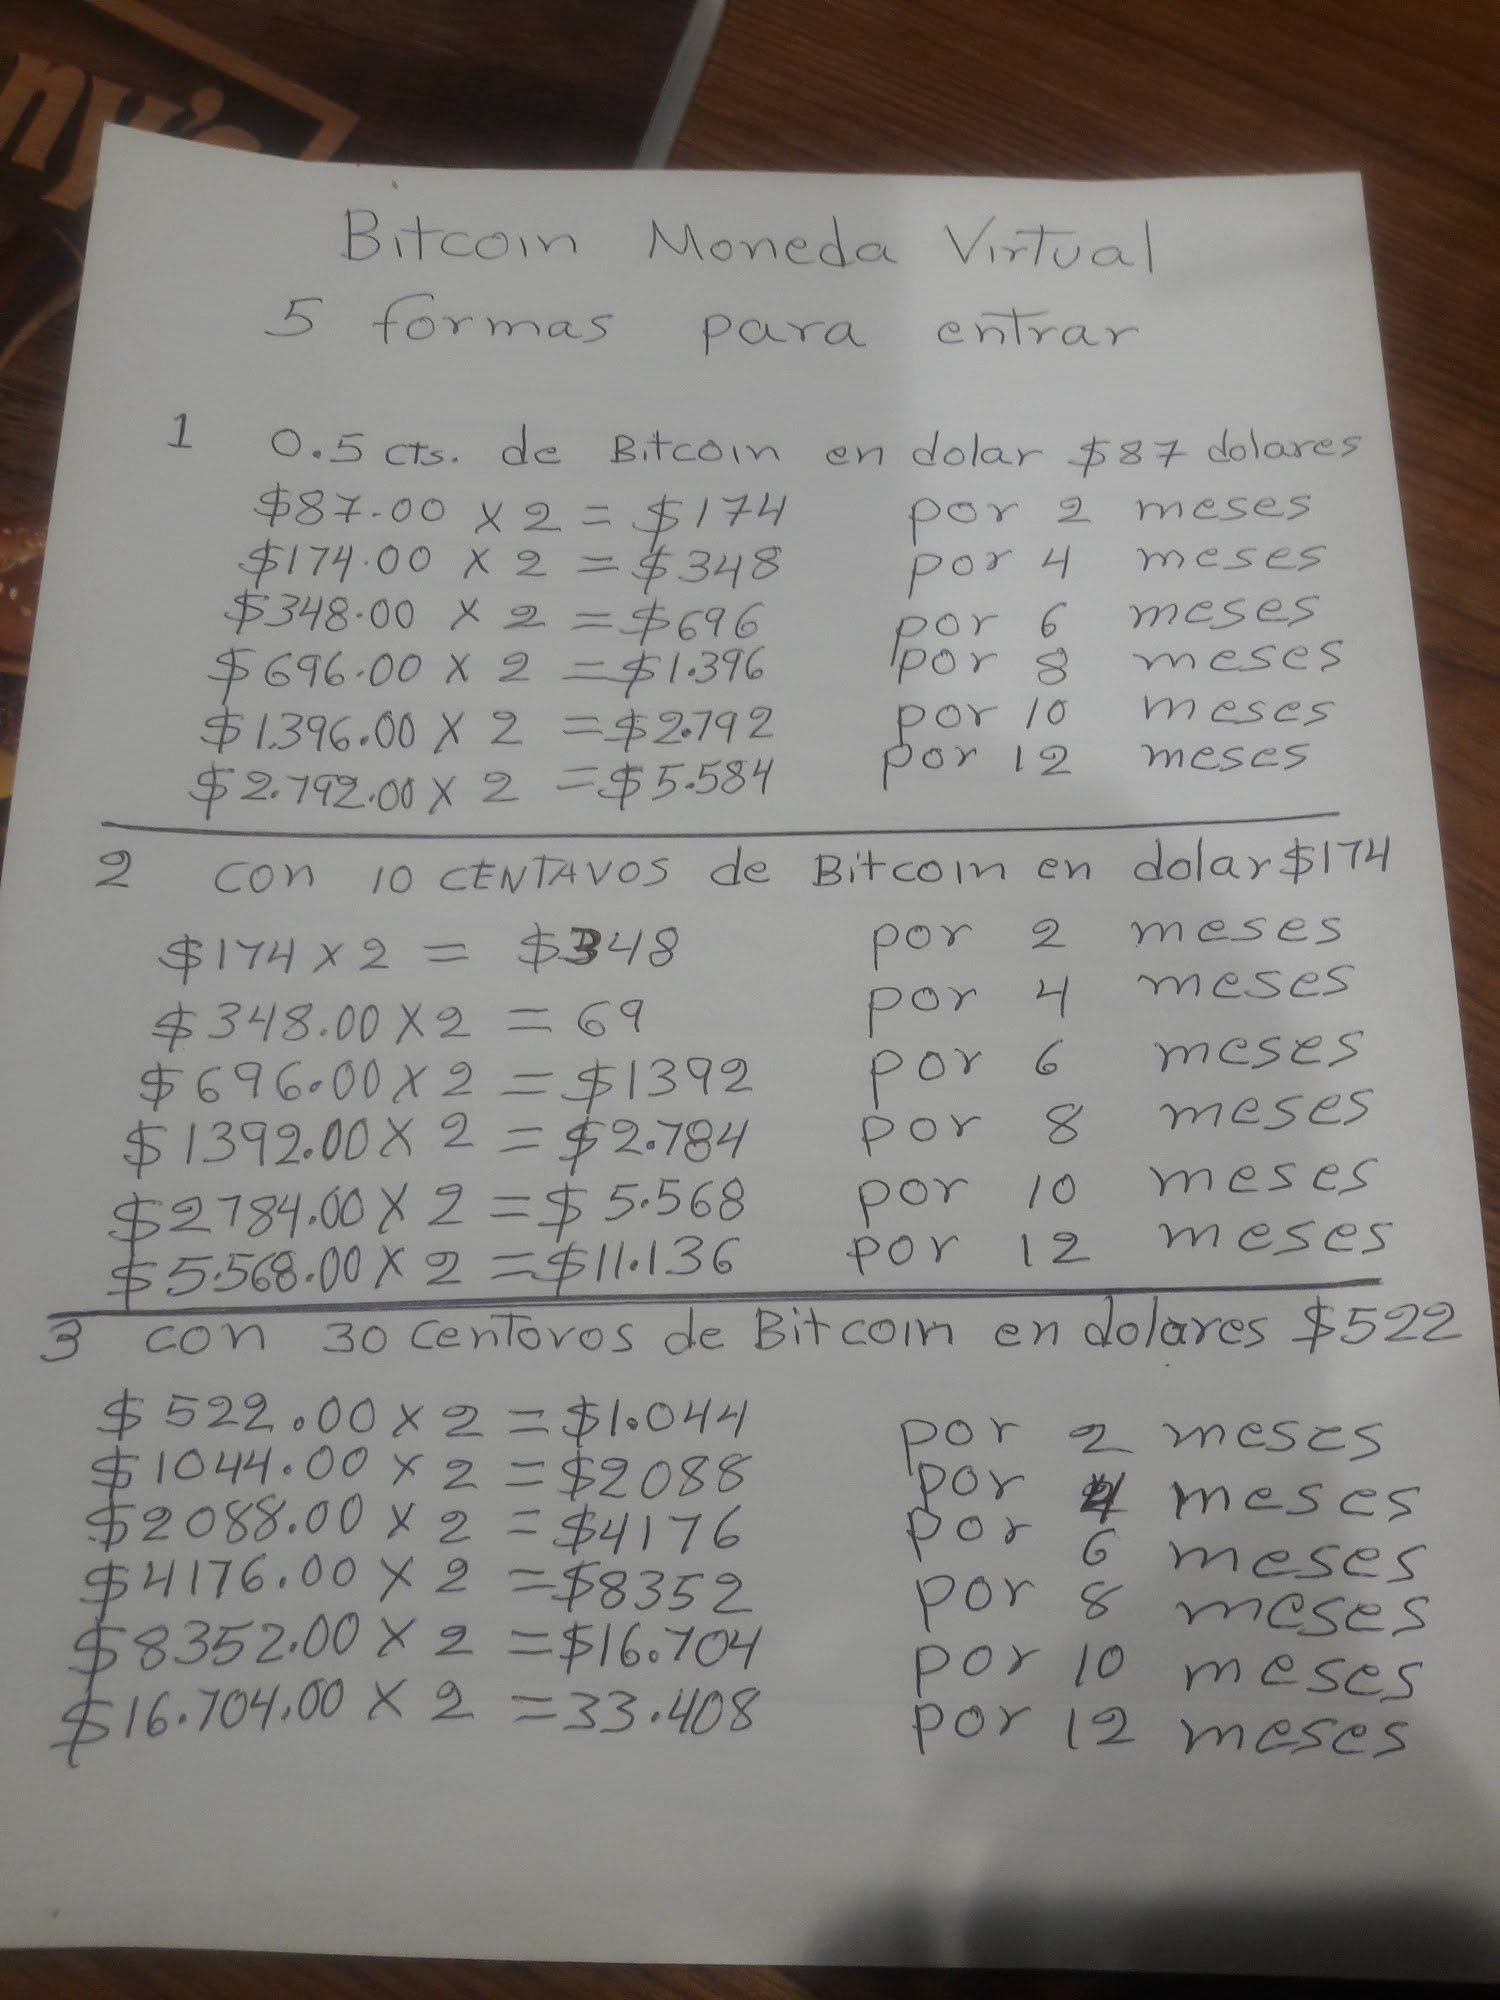 ny's
Bitcoin Moneda Virtual
5 formas para entrar
1 0.5 cts. de Bitcoin en dolar $87 dolares
$87.00 x 2 = $174 por 2 meses
$174.00 x 2 = $348 por 4 meses
$348.00 x 2 = $696 por 6 meses
$696.00 x 2 = $1.396 por 8 meses
$1.396.00 x 2 = $2.792 por 10 meses
$2.792.00 x 2 = $5.584 por 12 meses
2 con 10 CENTAVOS de Bitcoin en dolar $174
$174 x 2 = $348 por 2 meses
$348.00 x 2 = 69 por 4 meses
$696.00 x 2 = $1392 por 6 meses
$1392.00 x 2 = $2.784 por 8 meses
$2784.00 x 2 = $5.568 por 10 meses
$5.568.00 x 2 = $11.136 por 12 meses
3 con 30 centovos de Bitcoin en dolares $522
$522.00 x 2 = $1.044 por 2 meses
$1044.00 x 2 = $2088 por 4 meses
$2088.00 x 2 = $4176 por 6 meses
$4176.00 x 2 = $8352 por 8 meses
$8352.00 x 2 = $16.704 por 10 meses
$16.704.00 x 2 = 33.408 por 12 meses